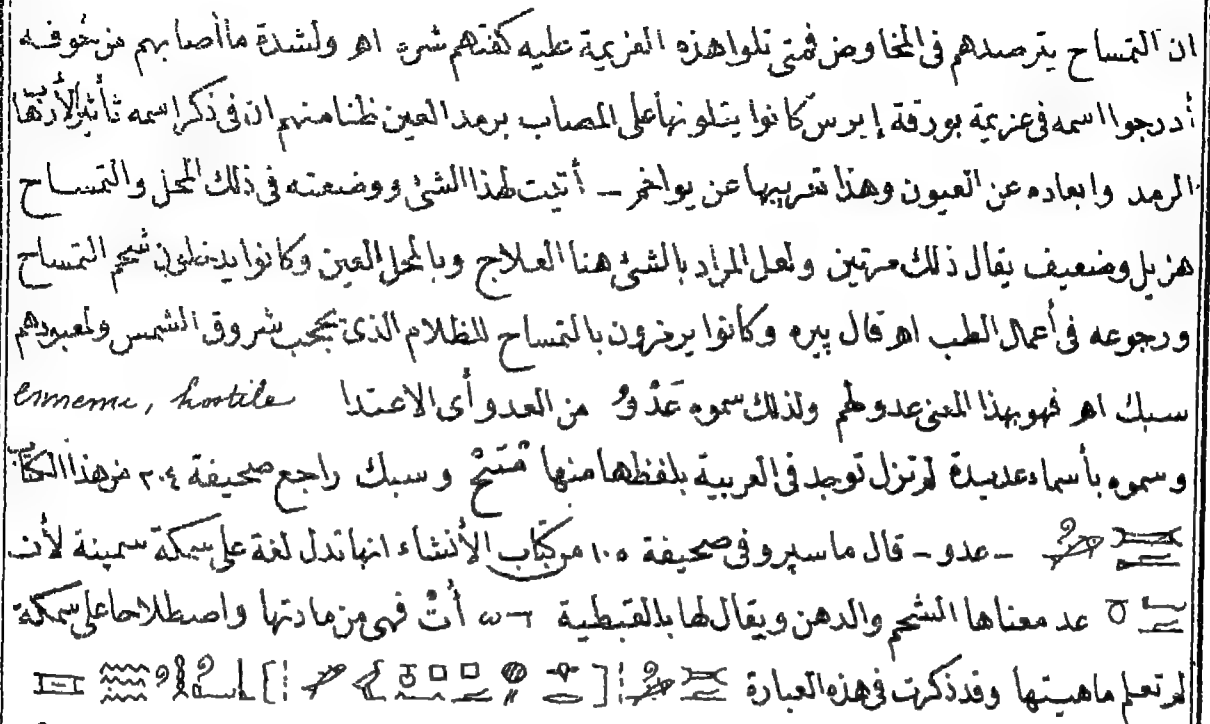 ان التمساح يترصدهم فى المخاوض فمتى تلوا هذه العزيمة عليه كفتهم شره اهـ ولشدة ما أصابهم من خوفه
أدرجوا اسمه فى عزيمة بورقة إبرس كانوا يتلونها على المصاب برمد العين ظنا منهم ان فى ذكر اسمه تأثيرا لأذهاب
الرمد وابعاده عن العيون وهذا تعريبها عن يواخم – أتيت لهذا الشئ ووضعته فى ذلك المحل والتمساح
هزيل وضعيف يقال ذلك مرتين ولعل المراد بالشئ هنا العلاج وبالمحل العين وكانوا يدخلون شحم التمساح
ورجوعه فى أعمال الطب اهـ قال پيره وكانوا يرمزون بالتمساح للظلام الذى يحجب شروق الشمس ولمعبودهم
سبك اهـ فهو بهذا المعنى عدو لهم ولذلك سموه عَدْوُ من العدو أى الاعتدا ennemi, hostile
وسموه بأسماء عديدة لم تزل توجد فى العربية بلفظها منها وسبك راجع صحيفة ٢٠٤ من هذا الكتاب
– عدو – قال ماسپرو فى صحيفة ١٠٥ من كتاب الأنشاء انها تدل لغة على سمكة سمينة لأن
عد معناها الشحم والدهن ويقال لها بالقبطية أتْ فهى من مادتها واصطلاحا على سمكة
لم تعلم ماهيتها وقد ذكرت فى هذه العبارة